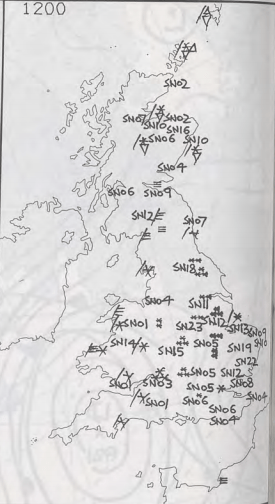 1200
SN02
SN07 SN02
SN10
SN16
SN06 SN10
SN04
SN06 SN09
SN12
SN07
SN18
SN04 SN11
SN01 SN23 SN12 SN13
SN09
SN10
SN14 SN15 SN05 SN19
SN22
SN01 SN03 SN05 SN12
SN08
SN05 SN04
SN01 SN06
SN06
SN04